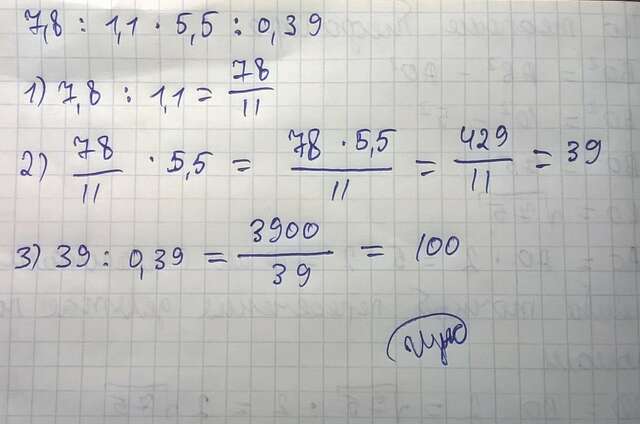 7,8 : 1,1 · 5,5 : 0,39
1) 7,8 : 1,1 = 78/11
2) 78/11 · 5,5 = 78 · 5,5/11 = 429/11 = 39
3) 39 : 0,39 = 3900/39 = 100